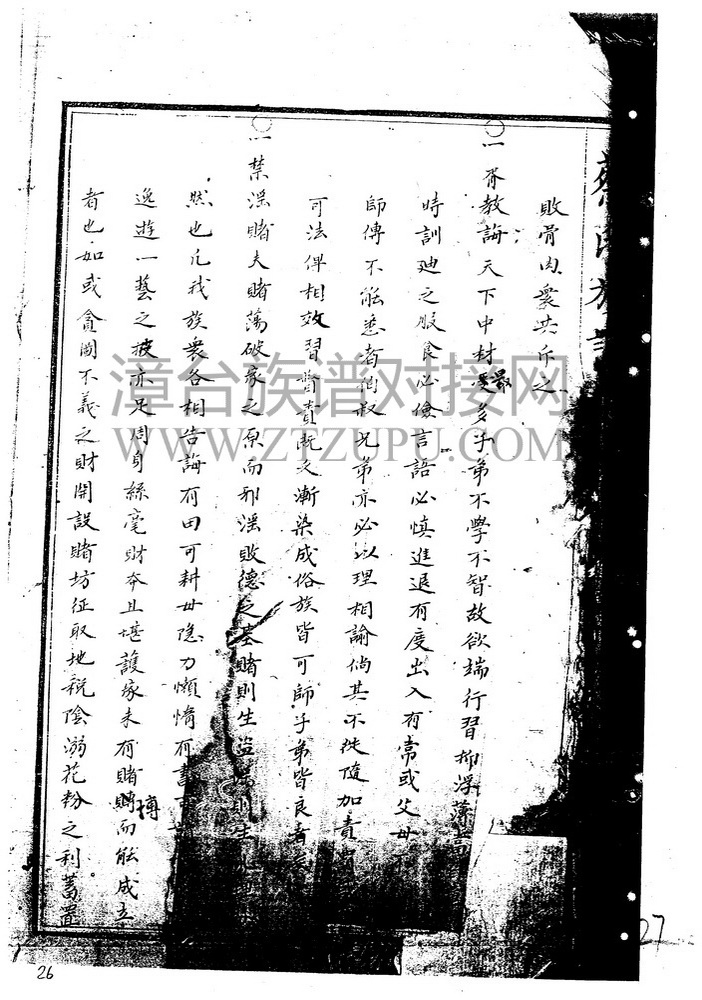 族
敗骨肉衆共斥之
〇一 胥教誨天下中材最多子弟不學不智故欲端行習抑浮薄
時訓廸之服食必儉言語必慎進退有度出入有常或父母
師傅不能悉者伯叔兄弟亦必以理相諭倘其不從隨加責
可法俾相效習嘗責既久漸染成俗族皆可師子弟皆良者
〇一 禁淫賭夫賭蕩破家之原而邪淫敗德之基賭則生盜淫則生
然也凡我族衆各相告誨有田可耕毋隐力懶惰有書
逸遊一藝之披亦足周身絲毫財夲且堪護家未有賭博而能成立
者也如或貪圖不義之財開設賭坊征取地稅陰溺花粉之利蓄置
漳台族谱对接网
WWW.ZTZUPU.COM
26
27